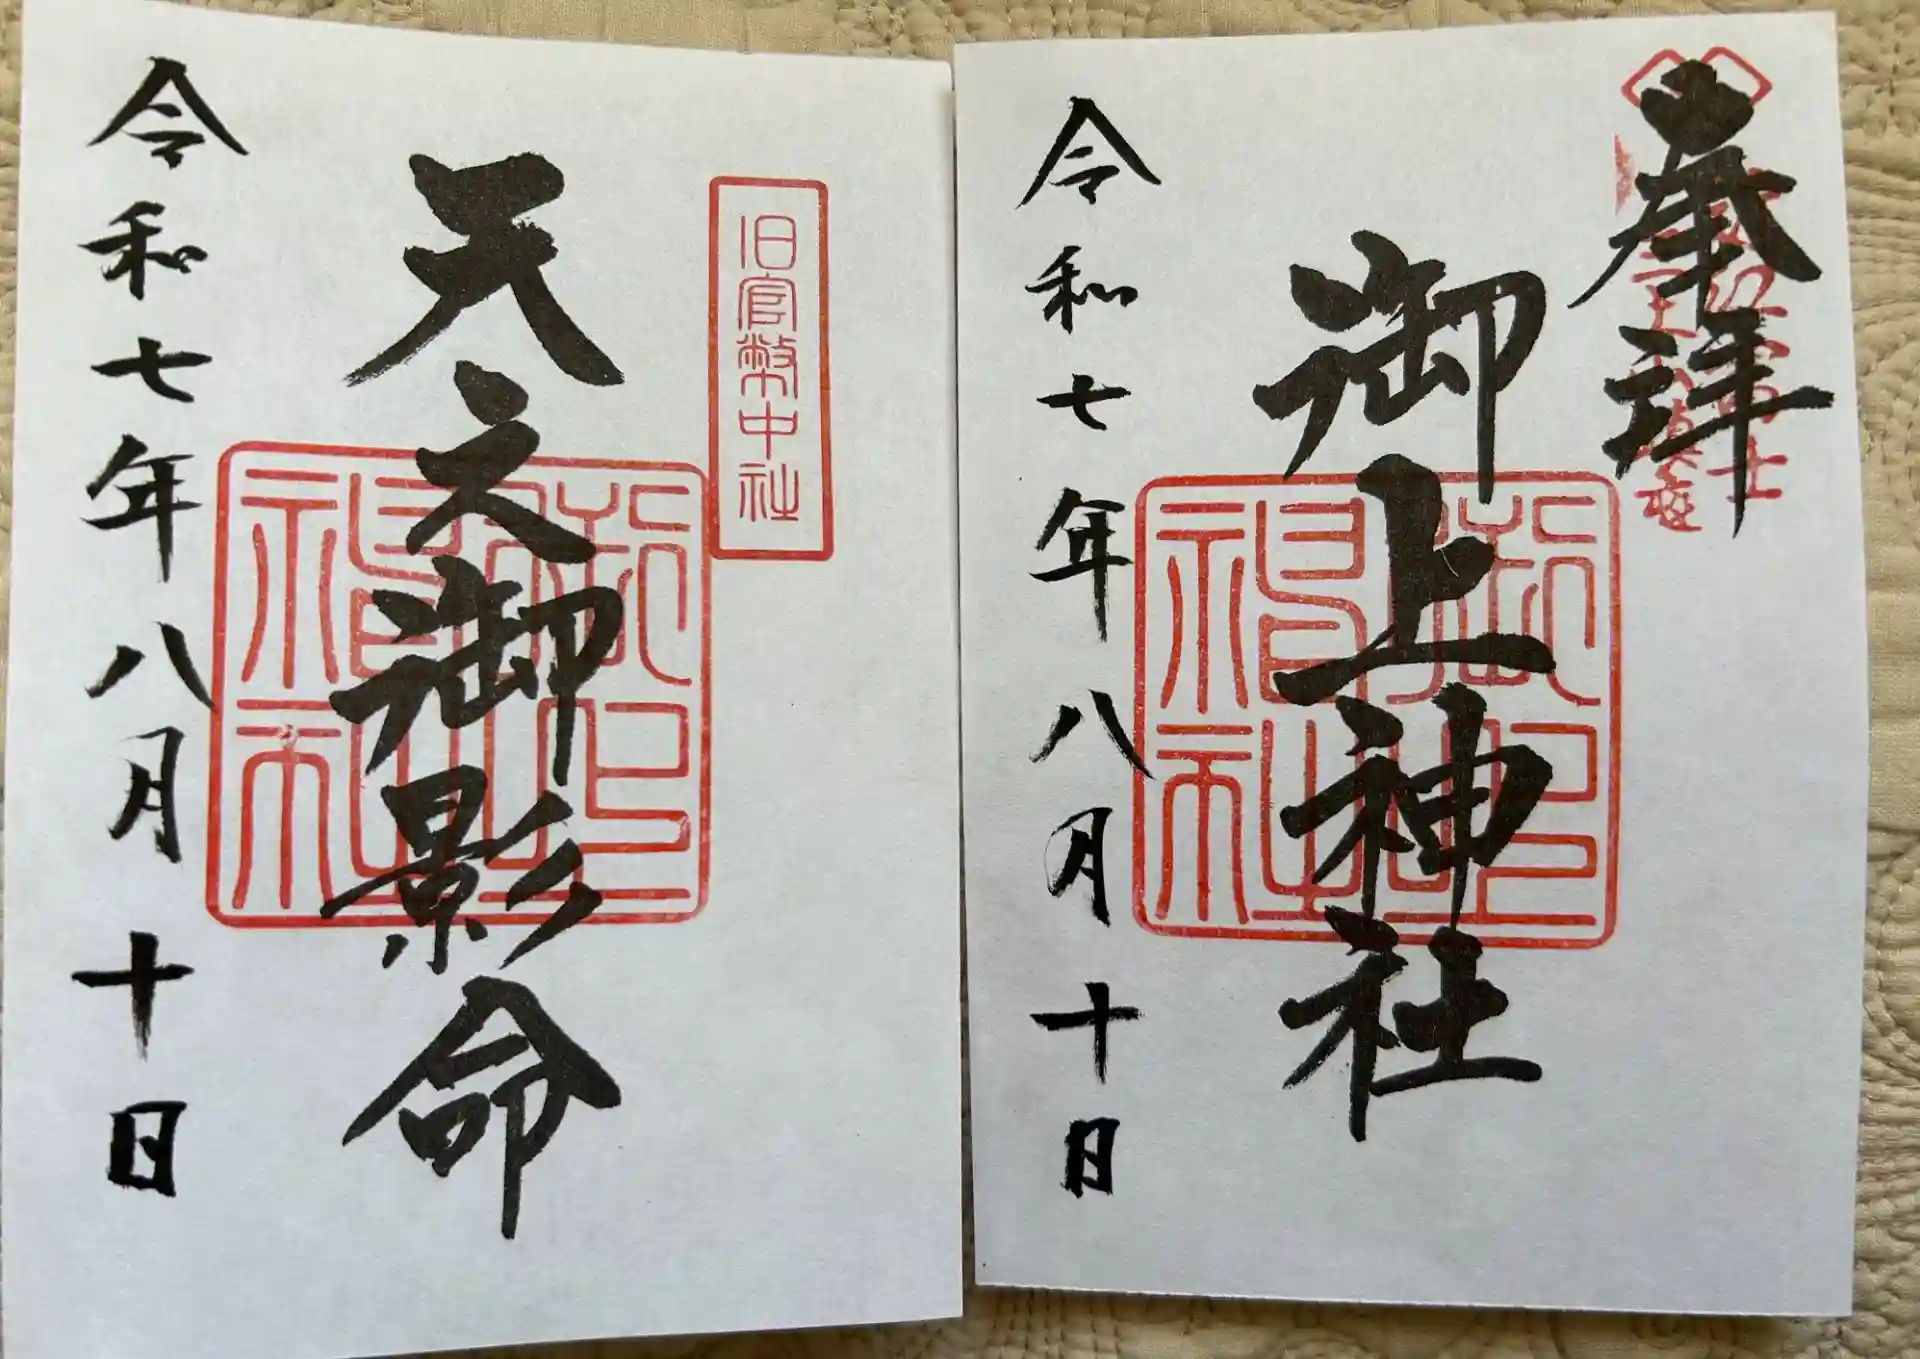 奉拝
御上神社
令和七年八月十日
旧官幣中社
天之御影命
令和七年八月十日